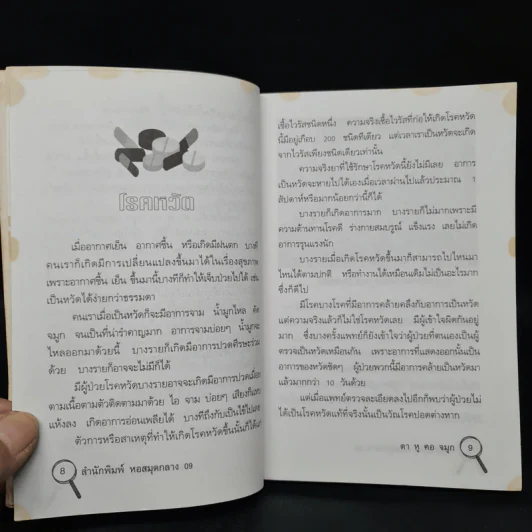 โรคหวัด
เมื่ออากาศเย็น อากาศชื้น หรือเกิดมีฝนตก บางที
คนเราก็เกิดมีการเปลี่ยนแปลงขึ้นมาได้ในเรื่องสุขภาพ
เพราะอากาศชื้น เย็น ขึ้นมานี้บางทีก็ทำให้เจ็บป่วยไปได้ เช่น
เป็นหวัดได้ง่ายกว่าธรรมดา
คนเราเมื่อเป็นหวัดก็จะมีอาการจาม น้ำมูกไหล คัด
จมูก จนเป็นที่น่ารำคาญมาก อาการจามบ่อยๆ น้ำมูกจะ
ไหลออกมาด้วยนี้ บางรายก็เกิดมีอาการปวดศีรษะร่วม
ด้วย บางรายก็อาจจะไม่มีก็ได้
มีผู้ป่วยโรคหวัดบางรายอาจจะเกิดมีอาการปวดเมื่อย
ตามเนื้อตามตัวติดตามมาด้วย ไอ จาม บ่อยๆ เสียงก็แหบ
แห้งลง เกิดอาการอ่อนเพลียได้ บางทีถึงกับเป็นไข้ไปเลย
ตัวการหรือสาเหตุที่ทำให้เกิดโรคหวัดขึ้นนั้นก็ได้แก่
8 สำนักพิมพ์ หอสมุดกลาง 09
เชื้อไวรัสชนิดหนึ่ง ความจริงเชื้อไวรัสที่ก่อให้เกิดโรคหวัด
นี้มีอยู่เกือบ 200 ชนิดทีเดียว แต่เวลาเราเป็นหวัดจะเกิด
จากไวรัสเพียงชนิดเดียวเท่านั้น
ความจริงยาที่ใช้รักษาโรคหวัดนี้ยังไม่มีเลย อาการ
เป็นหวัดจะหายไปได้เองเมื่อเวลาผ่านไปแล้วประมาณ 1
สัปดาห์หรือมากน้อยกว่านี้ก็ได้
บางรายก็เกิดอาการมาก บางรายก็ไม่มากเพราะมี
ความต้านทานโรคดี ร่างกายสมบูรณ์ แข็งแรง เลยไม่เกิด
อาการรุนแรงนัก
บางรายเมื่อเกิดโรคหวัดขึ้นมาก็สามารถไปไหนมา
ไหนได้ตามปกติ หรือทำงานได้เหมือนเดิมไม่เป็นอะไรมาก
ซึ่งก็ดีไป
มีโรคบางโรคที่มีอาการคล้ายคลึงกับอาการเป็นหวัด
แต่ความจริงแล้วก็ไม่ใช่โรคหวัดเลย มีผู้เข้าใจผิดกันอยู่
มาก ซึ่งบางครั้งแพทย์ก็ยังเข้าใจว่าผู้ป่วยที่ตนเองเป็นผู้
ตรวจเป็นหวัดเหมือนกัน เพราะอาการที่แสดงออกนั้นเป็น
อาการของหวัดชัดๆ ผู้ป่วยพวกนี้มีอาการคล้ายเป็นหวัดมา
แล้วมากกว่า 10 วันด้วย
แต่เมื่อแพทย์ตรวจละเอียดลงไปอีกก็พบว่าผู้ป่วยไม่
ได้เป็นโรคหวัดแท้ที่จริงนั้นเป็นวัณโรคปอดต่างหาก
ตา หู คอ จมูก 9